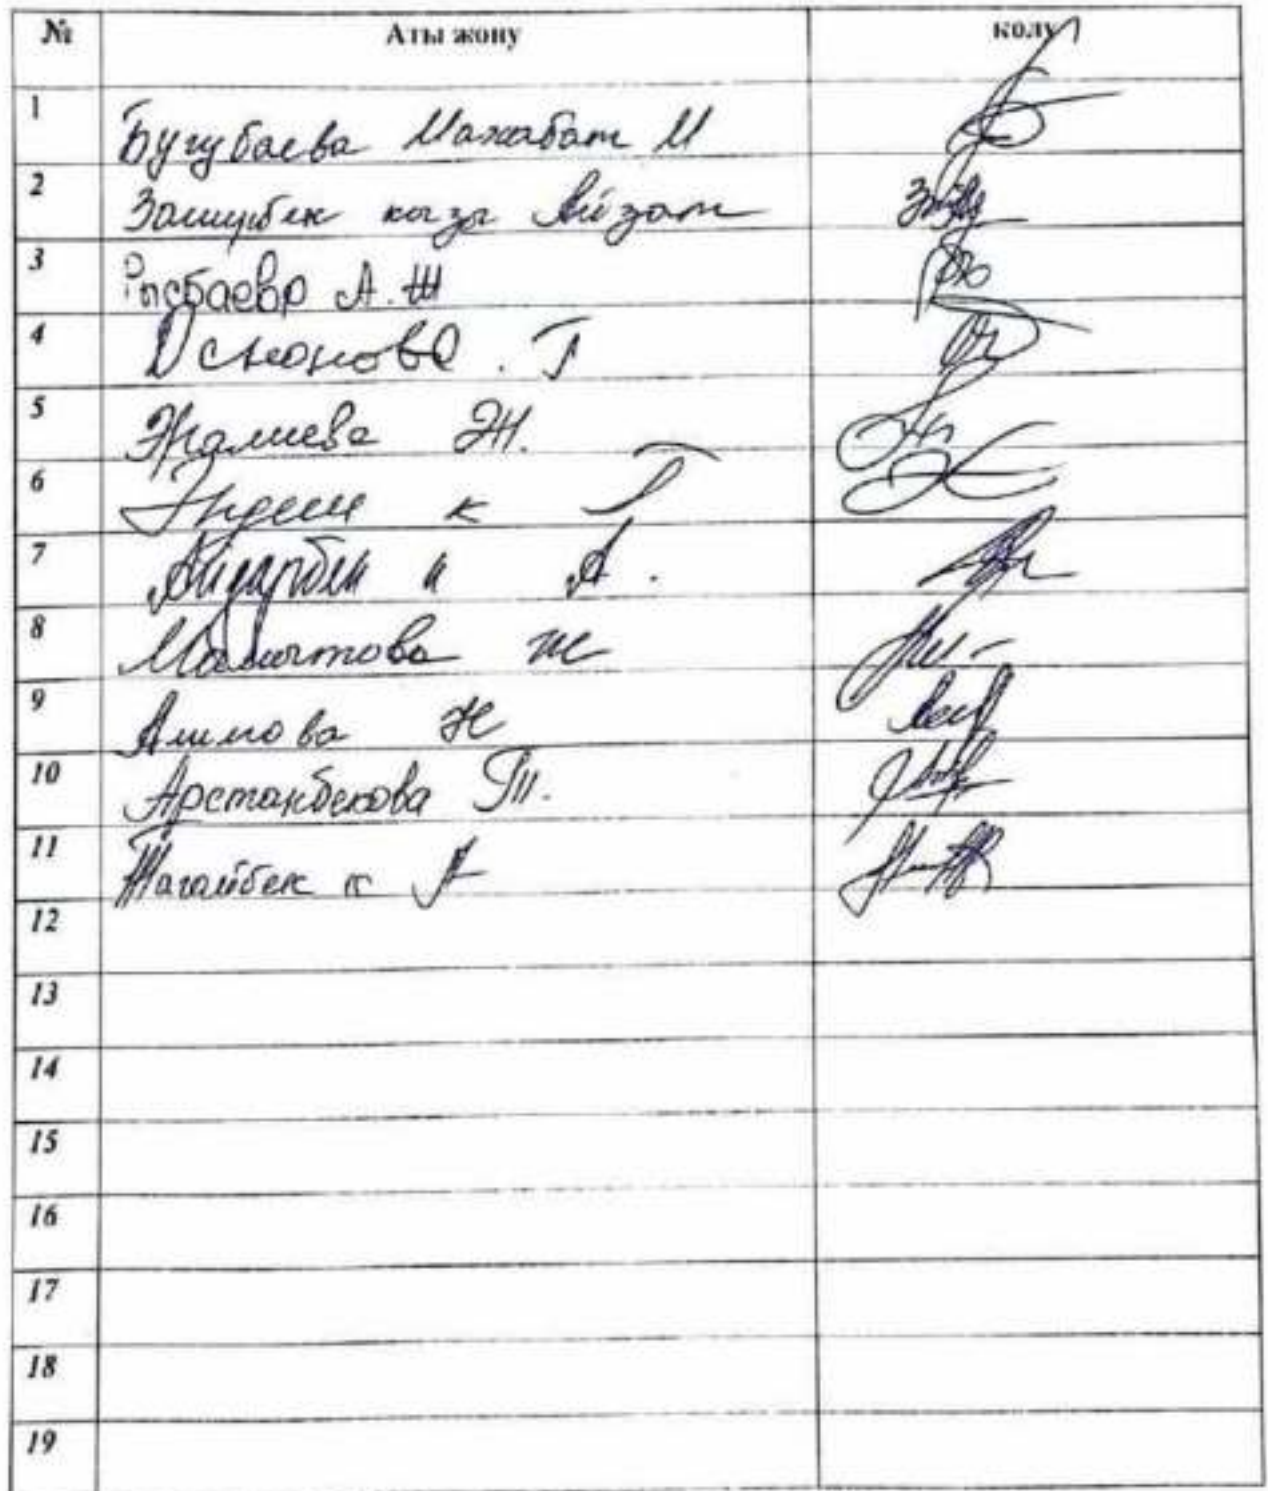 № Аты жону колу
1 Бугубаева Махабат М
2 кызы Айзат
3 Рысбаева А.Ш
4 Осмонова . Г
5 Эралиева Ж.
6 Эндеш к Г
7 к А.
8 Мамытова Ж
9 Алимова Н
10 Арстанбекова Т.
11 Тагайбек к А
12
13
14
15
16
17
18
19